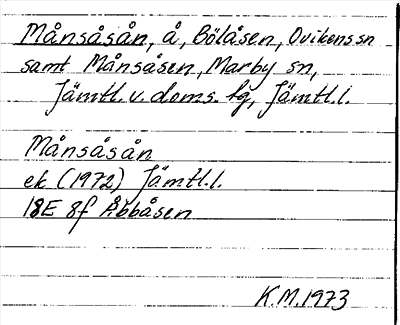 Månsåsån, å, Bölåsen, Ovikens sn
samt Månsåsen, Marby sn,
Jämtl. v. doms. tg, Jämtl. l.
Månsåsån
ek (1972) Jämtl. l.
18E 8f Åbbåsen
K.M. 1973